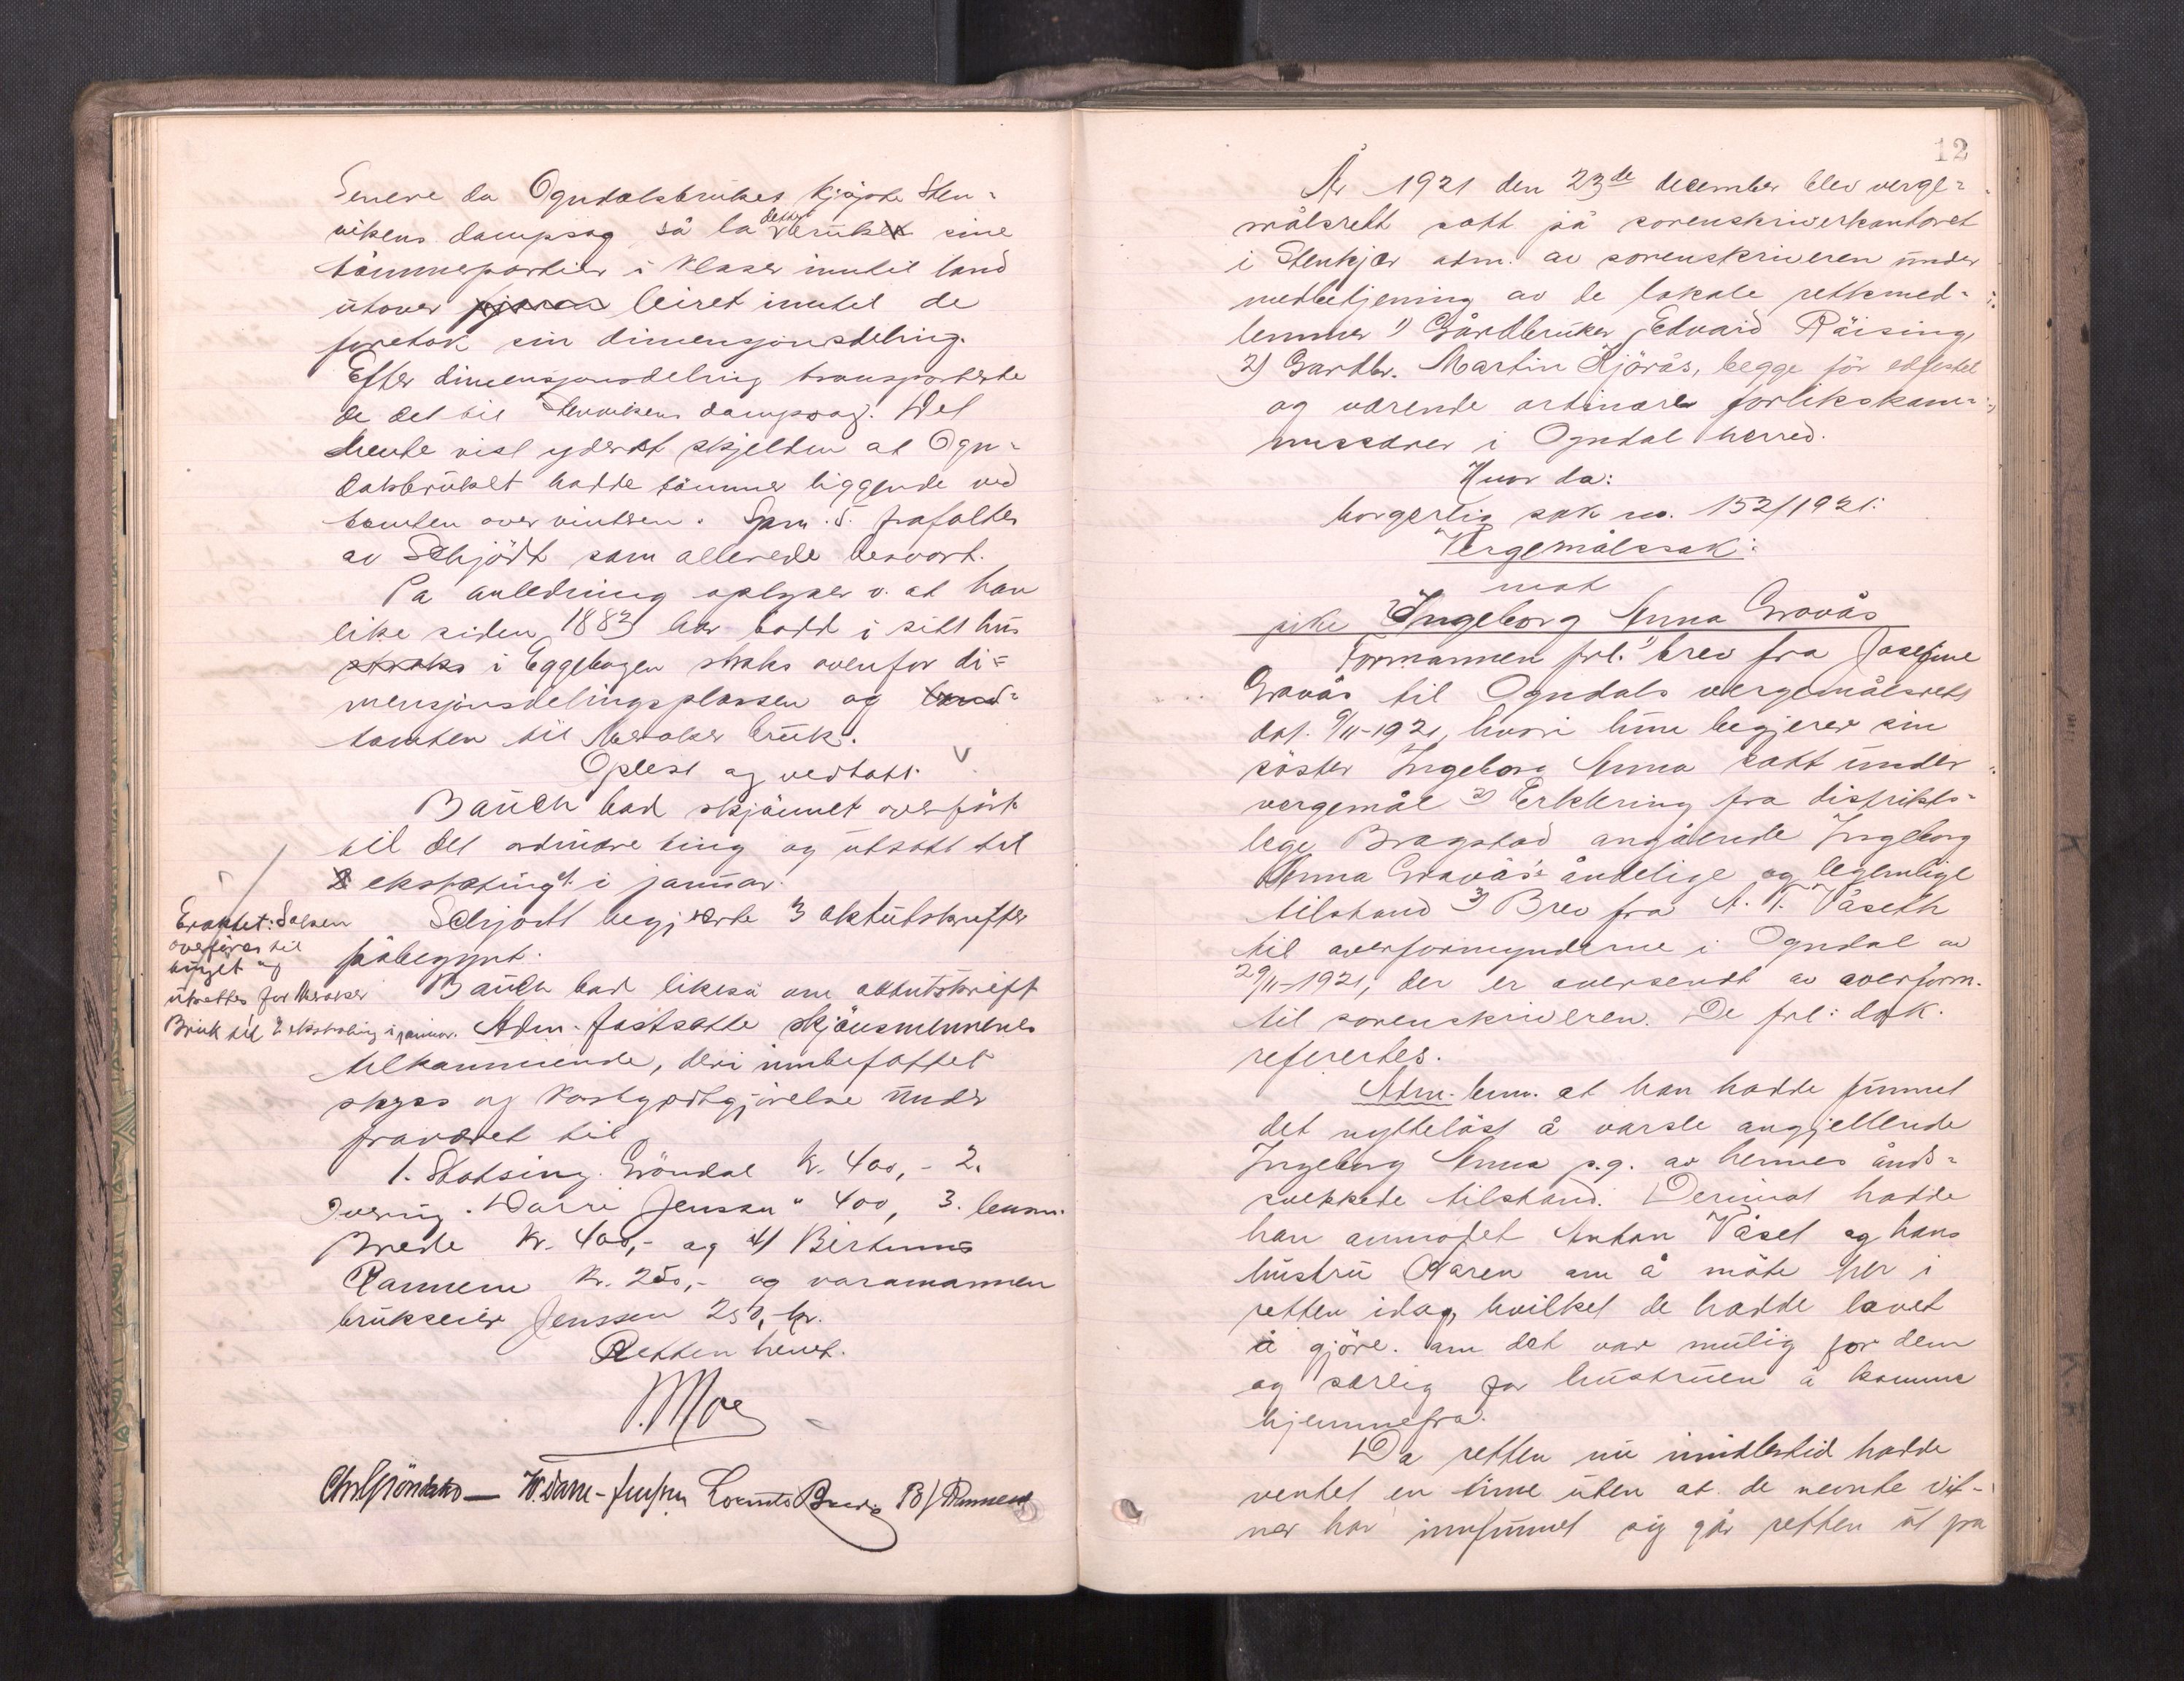 Senere da Ogndalsbruket kjöpte Sten-
vikens dampsag så la dette bruket sine
tömmerpartier i klaser inntil land
utover leiret inntil de
foretok sin dimensjonsdeling.
Efter dimensjonsdeling transporterte
de det til Stenvikens dampsag. Det
hente vist ydderst skjelden at Ogn-
dalsbruket hadde tömmer liggende ved
tomten over vintren. Spm. 5. frafaltes
av Schjödt som allerede besvart.
På anledning oplyser v. at han
like siden 1883 har bodd i sitt hus
straks i Eggebogen straks ovenfor di-
mensjonsdelingsplassen og land-
tomten til Meraker bruk.
Oplest og vedtatt.
Bauch bad skjönnet overfört
til det ordinære ting og utsatt til
2 ekstrating i januar.
Schjödt begjærte 3 aktutskrifter
påbegynt.
Eraktet: Saken
overföres til
tinget og
utsettes for Meraker
Bruk til 2 ekstrating i januar.
Bauch bad likeså om aktutskrift
Adm. fastsatte skjönsmennenes
tilkommende, deri innbefattet
skyss og kostgodtgjörelse under
fraværet til
1. Statsing. Gröndal kr. 400,- 2.
Overing. Darre Jenssen " 400, 3. lensm.
Brede kr. 400,- og 4/ Birkumö
Rannem kr. 250,- og varamannen
brukseier Jenssen 250,- kr.
Retten hevet.
Moe
Chr Gröndahl — W. Darre-Jenssen Brede B/ Rannem
12
År 1921 den 23de december blev verge-
målsrett satt på sorenskriverkontoret
i Stenkjer adm. av sorenskriveren under
medbetjening av de lokale rettsmed-
lemmer 1) Gårdbruker Edvard Röising,
2) Gardbr. Martin Kjörås, begge för edfestet
og værende ordinære forlikskom-
missærer i Ogndal herred.
Hvor da:
borgerlig sak no. 152/1921:
Vergemålssak:
mot
pike Ingeborg Anna Gravås
Formannen frl. 1) brev fra Josefine
Gravås til Ogndals vergemålsrett
dat. 9/11-1921, hvori hun begjerer sin
söster Ingeborg Anna satt under
vergemål 2) Erklering fra distrikts-
lege Bragstad angående Ingeborg
Anna Gravås's åndelige og legemlige
tilstand 3) Brev fra A. K. Våseth
til overformynderne i Ogndal av
29/11-1921, der er oversendt av overform.
til sorenskriveren. De frl: dok.
refereertes.
Adm. bem. at han hadde funnet
det nytteløst å varsle angjellende
Ingeborg Anna p.g. av hennes ånds-
svekkede tilstand. Derimot hadde
han anmodet Anton Våset og hans
hustru Karen om å möte her i
retten idag, hvilket de hadde lovet
å gjöre. om det var mulig for dem
og særlig for hustruen å komme
hjemmefra.
Da retten nu imidlertid hadde
ventet en time uten at de nevnte vit-
ner har innfunnet sig går retten ut fra